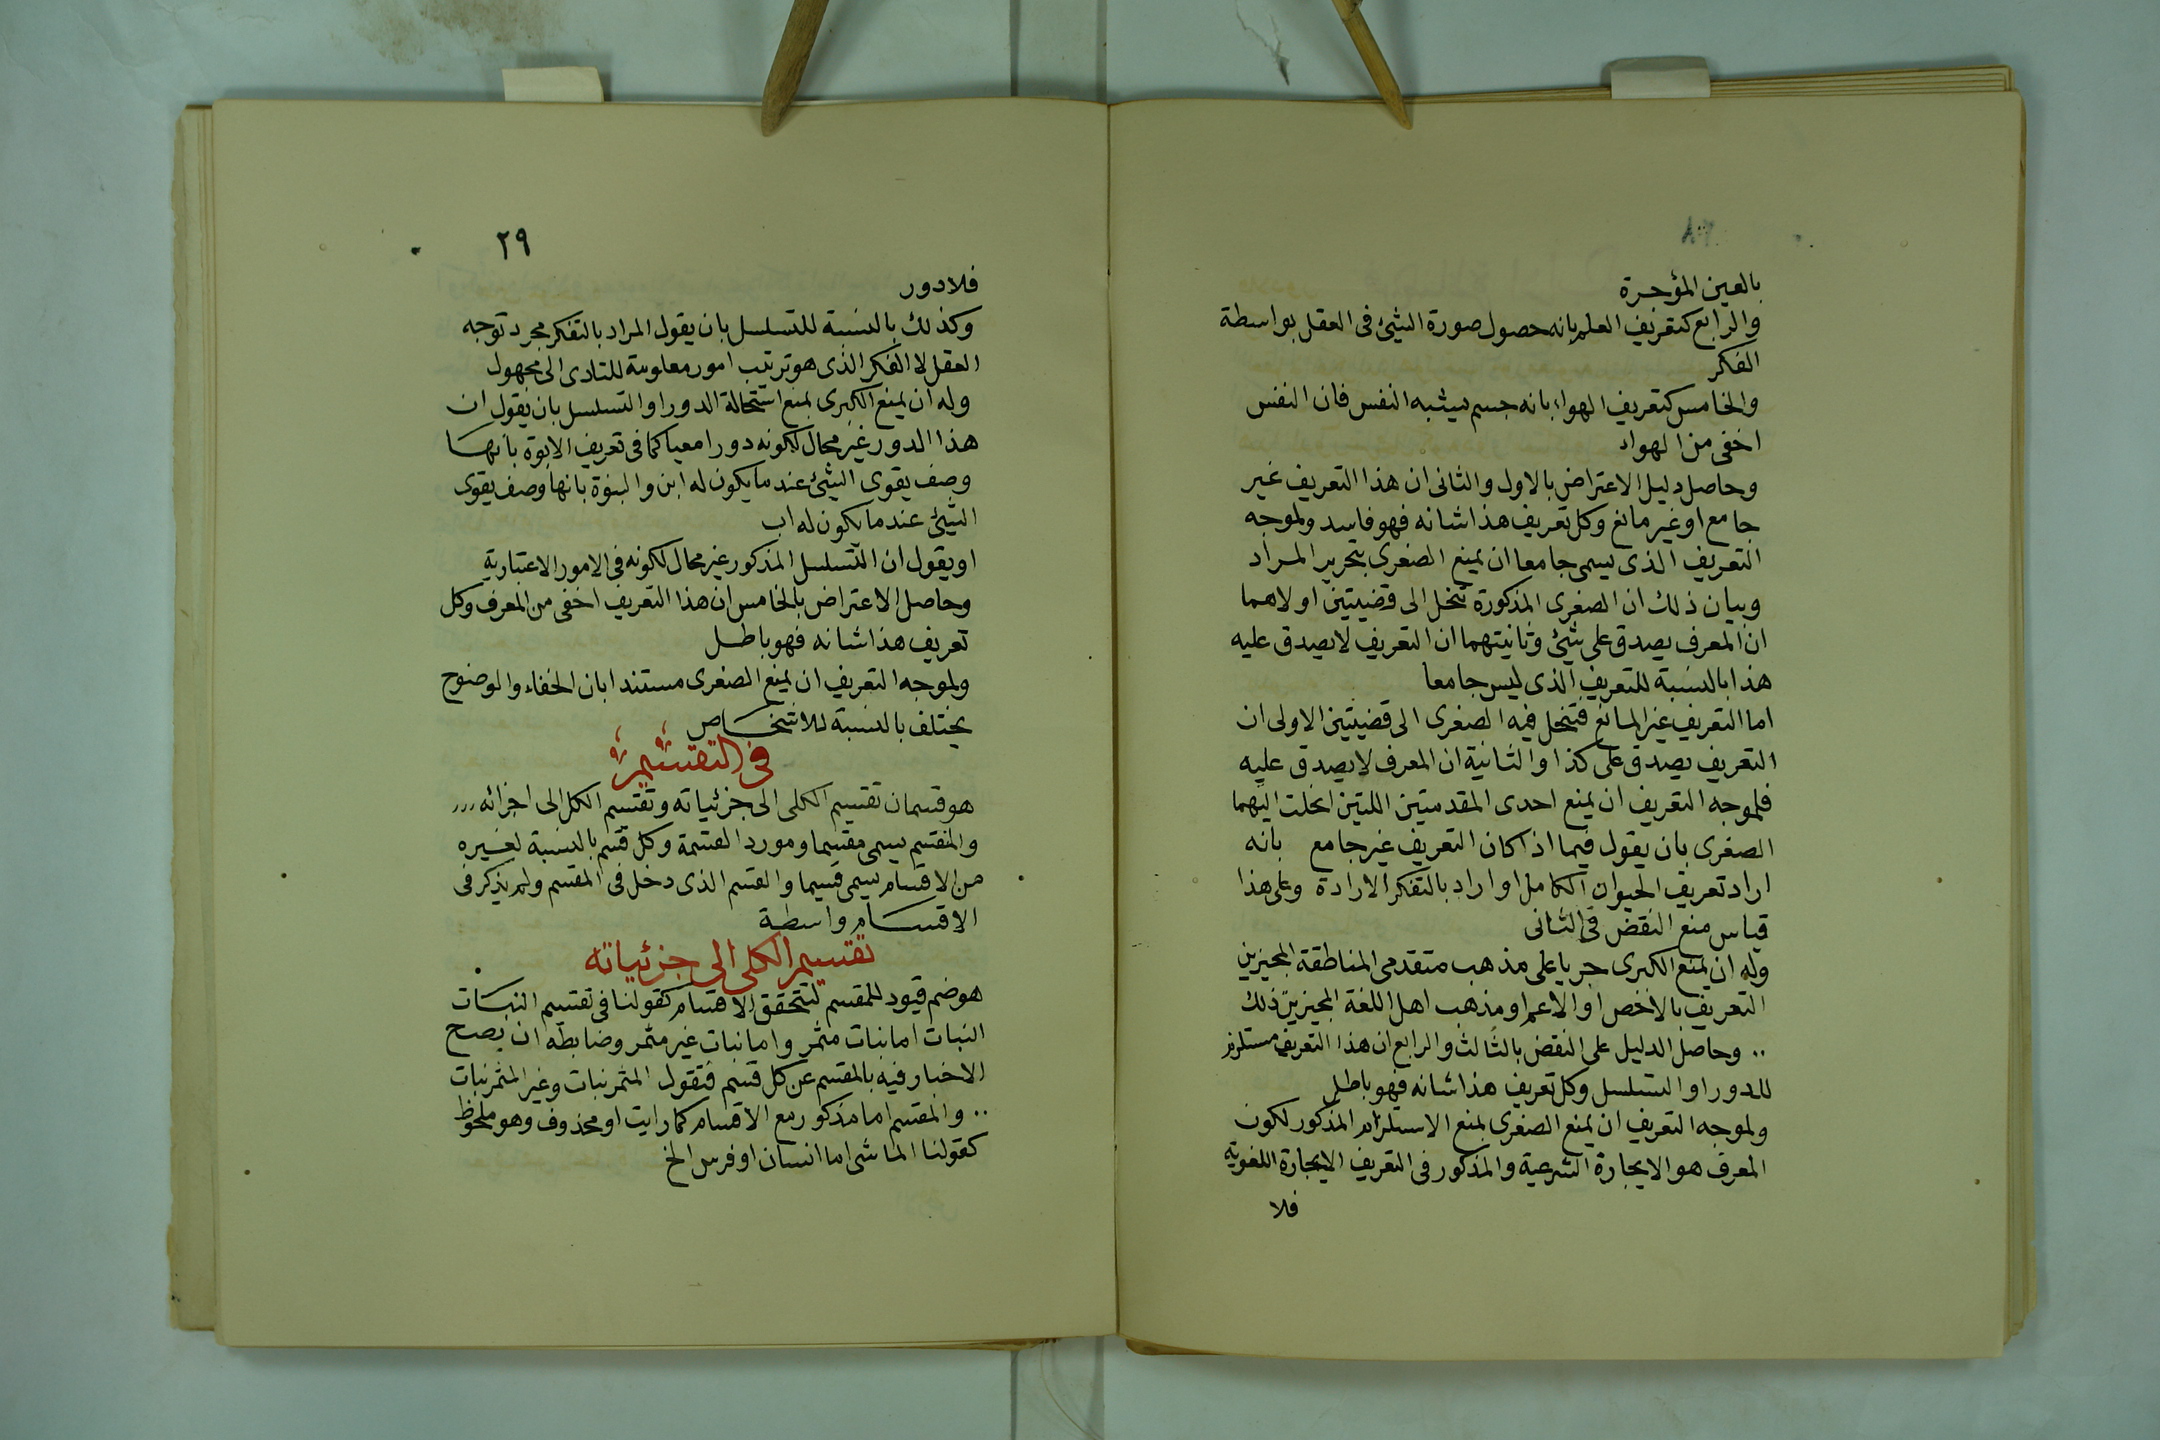 ٢٨
بالعين المؤجرة
والرابع كتعريف العلم بانه حصول صورة الشئ فى العقل بواسطة
الفكر
والخامس كتعريف الهواء بانه جسم يشبه النفس فان النفس
اخفى من الهواء
وحاصل دليل الاعتراض بالاول والثانى ان هذا التعريف غير
جامع او غير مانع وكل تعريف هذا شانه فهو فاسد ولموجه
التعريف الذى يسمى جامعا ان يمنع الصغرى بتحرير المراد
وبيان ذلك ان الصغرى المذكورة تنحل الى قضيتين اولاهما
ان المعرف يصدق على شئ وثانيتهما ان التعريف لا يصدق عليه
هذا بالنسبة للتعريف الذى ليس جامعا
اما التعريف غير المانع فتنحل فيه الصغرى الى قضيتين الاولى ان
التعريف يصدق على كذا والثانية ان المعرف لا يصدق عليه
فلموجه التعريف ان يمنع احدى المقدمتين اللتين انحلت اليهما
الصغرى بان يقول فيما اذا كان التعريف غير جامع بانه
اراد تعريف الحيوان الكامل او اراد بالتفكر الارادة وعلى هذا
قياس منع النقض فى الثانى
وله ان يمنع الكبرى جريا على مذهب متقدمى المناطقة المجيزين
التعريف بالاخص او الاعم او مذهب اهل اللغة المجيزين ذلك
.. وحاصل الدليل على النقض بالثالث والرابع ان هذا التعريف مستلزم
للدور او التسلسل وكل تعريف هذا شانه فهو باطل
ولموجه التعريف ان يمنع الصغرى بمنع الاستلزام المذكور لكون
المعرف هو الايجارة الشرعية والمذكور فى التعريف الايجارة اللغوية
فلا
٢٩
فلا دور
وكذلك بالنسبة للتسلسل بان يقول المراد بالتفكر مجرد توجه
العقل لا الفكر الذى هو ترتيب امور معلومة للتادى الى مجهول
وله ان يمنع الكبرى بمنع استحالة الدور او التسلسل بان يقول ان
هذا الدور غير محال لكونه دورا معيا كما فى تعريف الابوة بانها
وصف يقوى الشئ عندما يكون له ابن والبنوة بانها وصف يقوى
الشئ عندما يكون له اب
او يقول ان التسلسل المذكور غير محال لكونه فى الامور الاعتبارية
وحاصل الاعتراض بالخامس ان هذا التعريف اخفى من المعرف وكل
تعريف هذا شانه فهو باطل
ولموجه التعريف ان يمنع الصغرى مستندا بان الخفاء والوضوح
يختلف بالنسبة للاشخاص
فى التقسيم
هو قسمان تقسيم الكلى الى جزئياته وتقسيم الكل الى اجزائه ...
والمنقسم يسمى مقسما ومورد القسمة وكل قسم بالنسبة لغيره
من الاقسام يسمى قسيما والقسم الذى دخل فى المقسم ولم يذكر فى
الاقسام واسطة
تقسيم الكلى الى جزئياته
هو ضم قيود للمقسم لتتحقق الاقسام كقولنا فى تقسيم النبات
النبات اما نبات مثمر واما نبات غير مثمر وضابطه ان يصح
الاخبار فيه بالمقسم عن كل قسم فتقول المثمر نبات وغير المثمر نبات
.. والمقسم اما مذكور مع الاقسام كما رايت او محذوف وهو ملحوظ
كقولنا الماشى اما انسان او فرس الخ